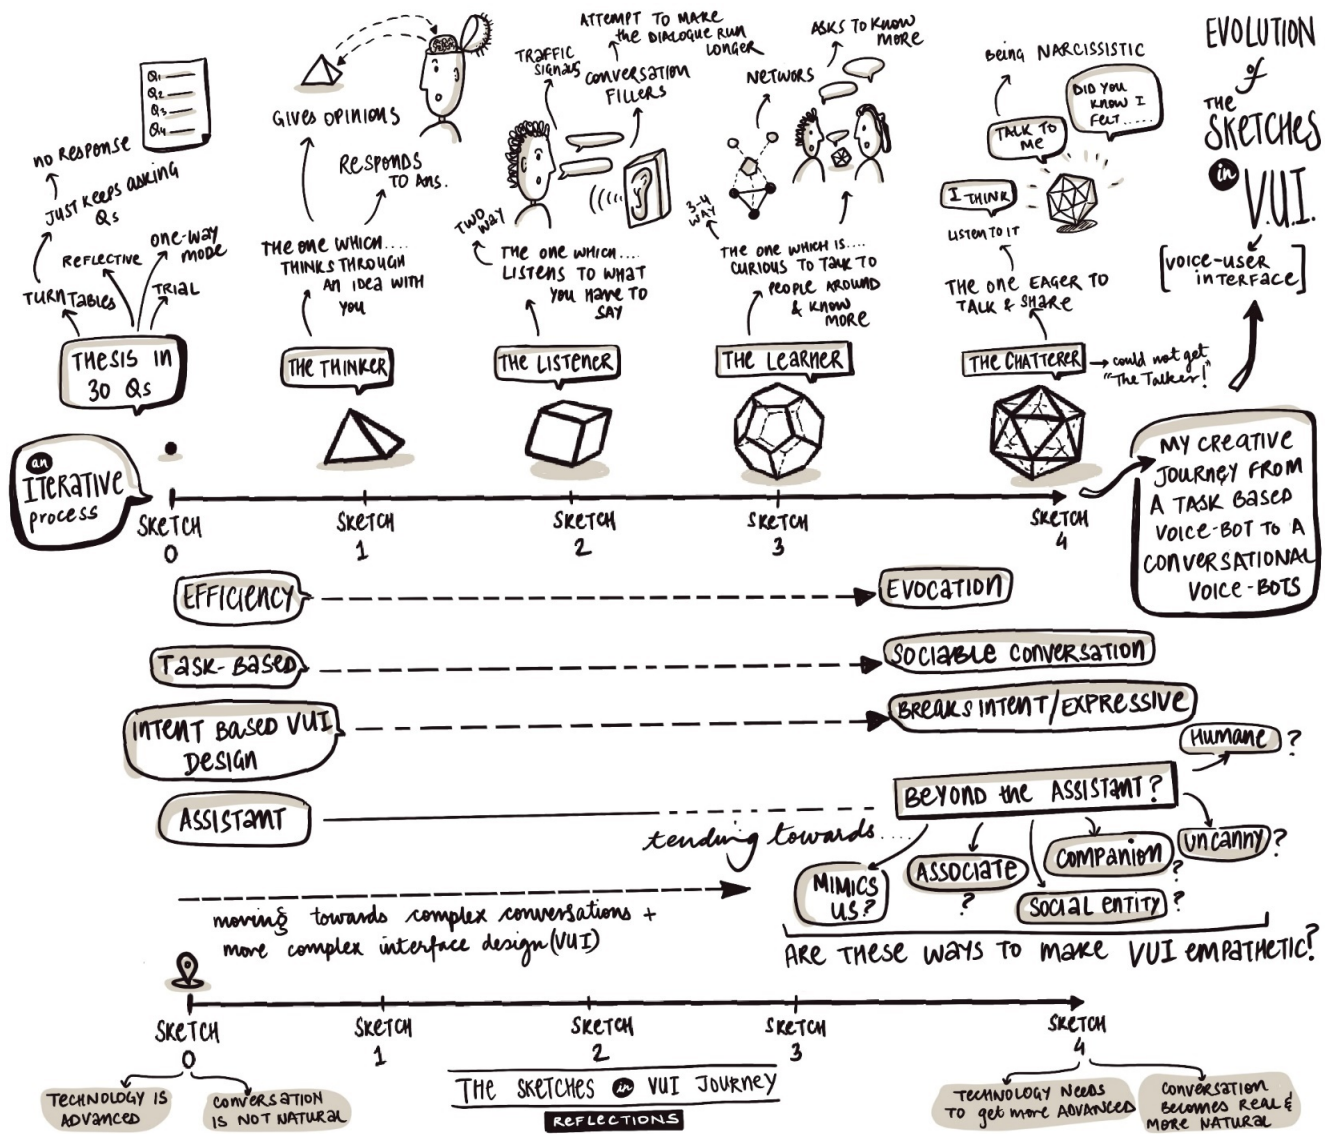 EVOLUTION
of
THE
SKETCHES
in
V.U.I.
[VOICE-USER
INTERFACE]
Q1
Q2
Q3
Q4
NO RESPONSE
JUST KEEPS ASKING
Qs
TURNTABLES
REFLECTIVE
ONE-WAY
MODE
TRIAL
THESIS IN
30 Qs
GIVES OPINIONS
RESPONDS
TO ANS.
THE ONE WHICH....
THINKS THROUGH
AN IDEA WITH
YOU
THE THINKER
ATTEMPT TO MAKE
the DIALOGUE RUN
LONGER
TRAFFIC
SIGNALS
CONVERSATION
FILLERS
TWO
WAY
THE ONE WHICH...
LISTENS TO WHAT
YOU HAVE TO
SAY
THE LISTENER
ASKS TO KNOW
MORE
NETWORKS
3-4
WAY
THE ONE WHICH IS....
CURIOUS TO TALK TO
PEOPLE AROUND
& KNOW
MORE
THE LEARNER
Being NARCISSISTIC
DID YOU
KNOW I
FELT.....
TALK TO
ME
I THINK
LISTEN TO IT
THE ONE EAGER TO
TALK & SHARE
THE CHATTERER
could not get
"The Talker!"
an
ITERATIVE
process
SKETCH
0
SKETCH
1
SKETCH
2
SKETCH
3
SKETCH
4
MY CREATIVE
JOURNEY FROM
A TASK BASED
VOICE-BOT TO A
CONVERSATIONAL
VOICE-BOTS
EFFICIENCY
EVOCATION
TASK-BASED
SOCIABLE CONVERSATION
INTENT BASED VUI
DESIGN
BREAKS INTENT/EXPRESSIVE
HUMANE?
ASSISTANT
BEYOND the ASSISTANT?
tending towards....
UNCANNY?
COMPANION?
ASSOCIATE
?
MIMICS
US?
SOCIAL ENTITY?
moving towards complex conversations +
more complex interface design (VUI)
ARE THESE WAYS TO MAKE VUI EMPATHETIC?
SKETCH
0
SKETCH
1
SKETCH
2
SKETCH
3
SKETCH
4
TECHNOLOGY IS
ADVANCED
CONVERSATION
IS NOT NATURAL
THE SKETCHES in VUI JOURNEY
REFLECTIONS
TECHNOLOGY NEEDS
TO get more ADVANCED
CONVERSATION
BECOMES REAL &
MORE NATURAL